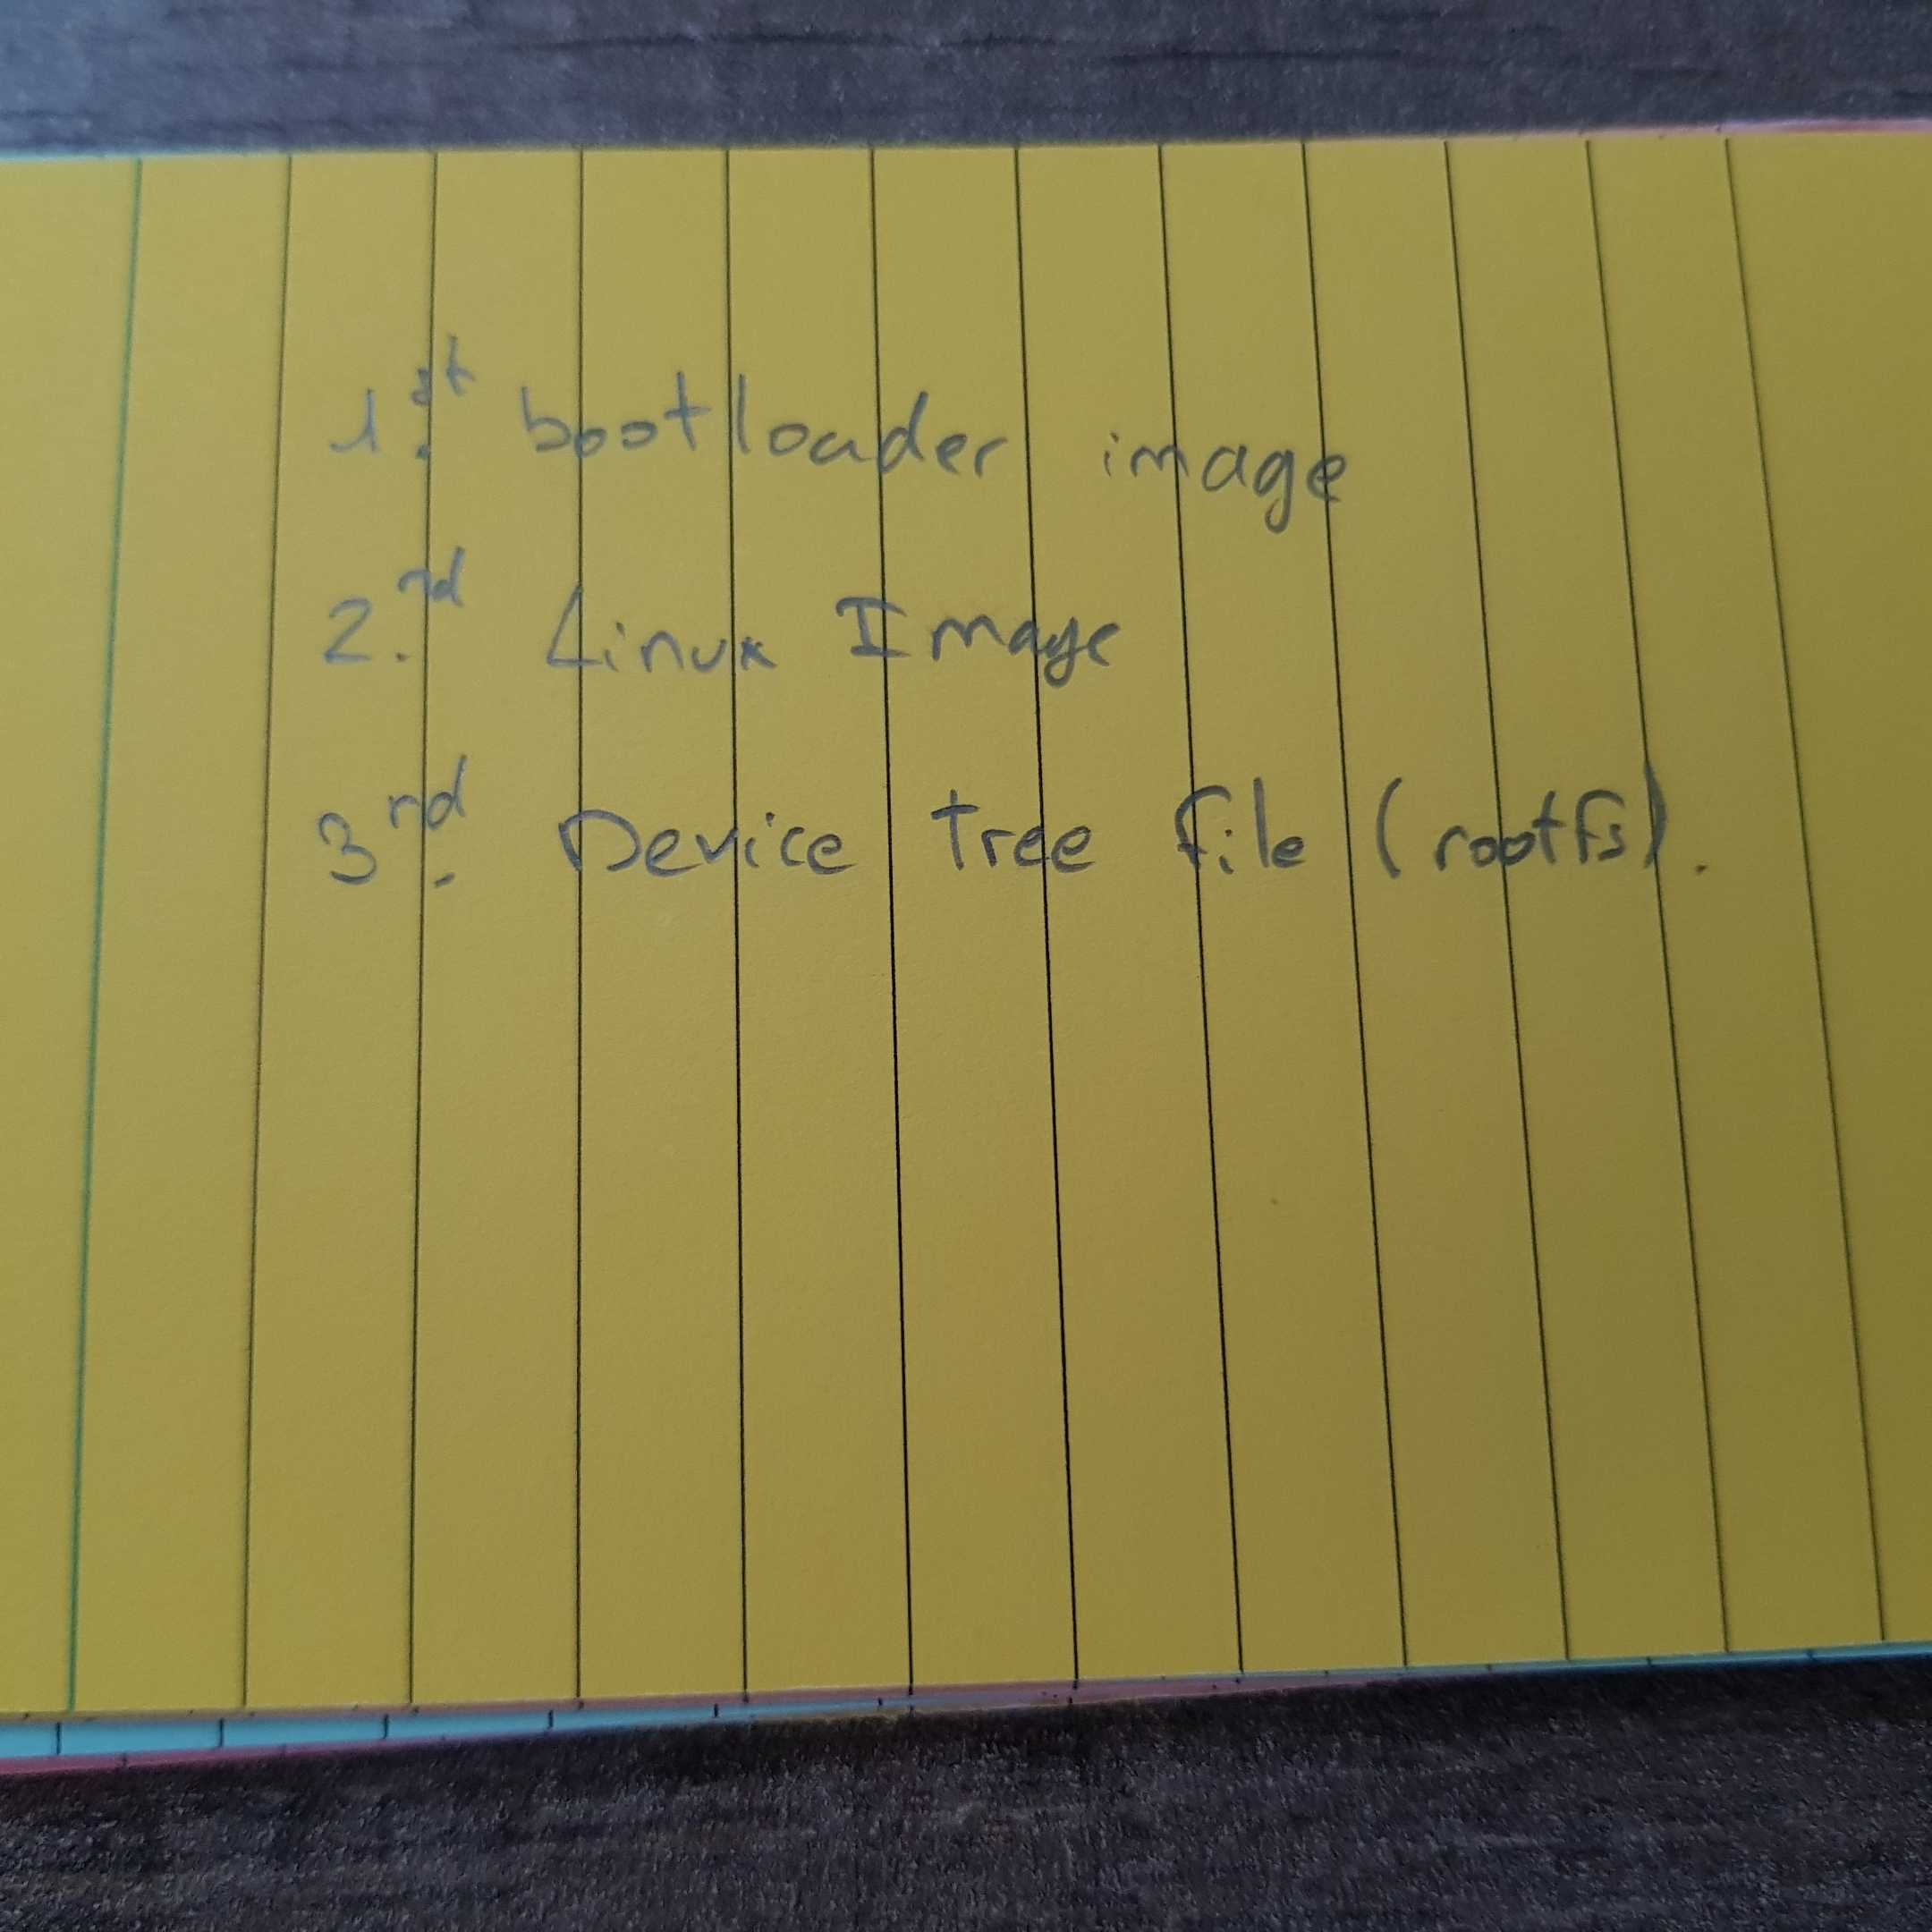 1.st bootloader image
2.nd Linux Image
3.nd Device Tree file (rootfs).